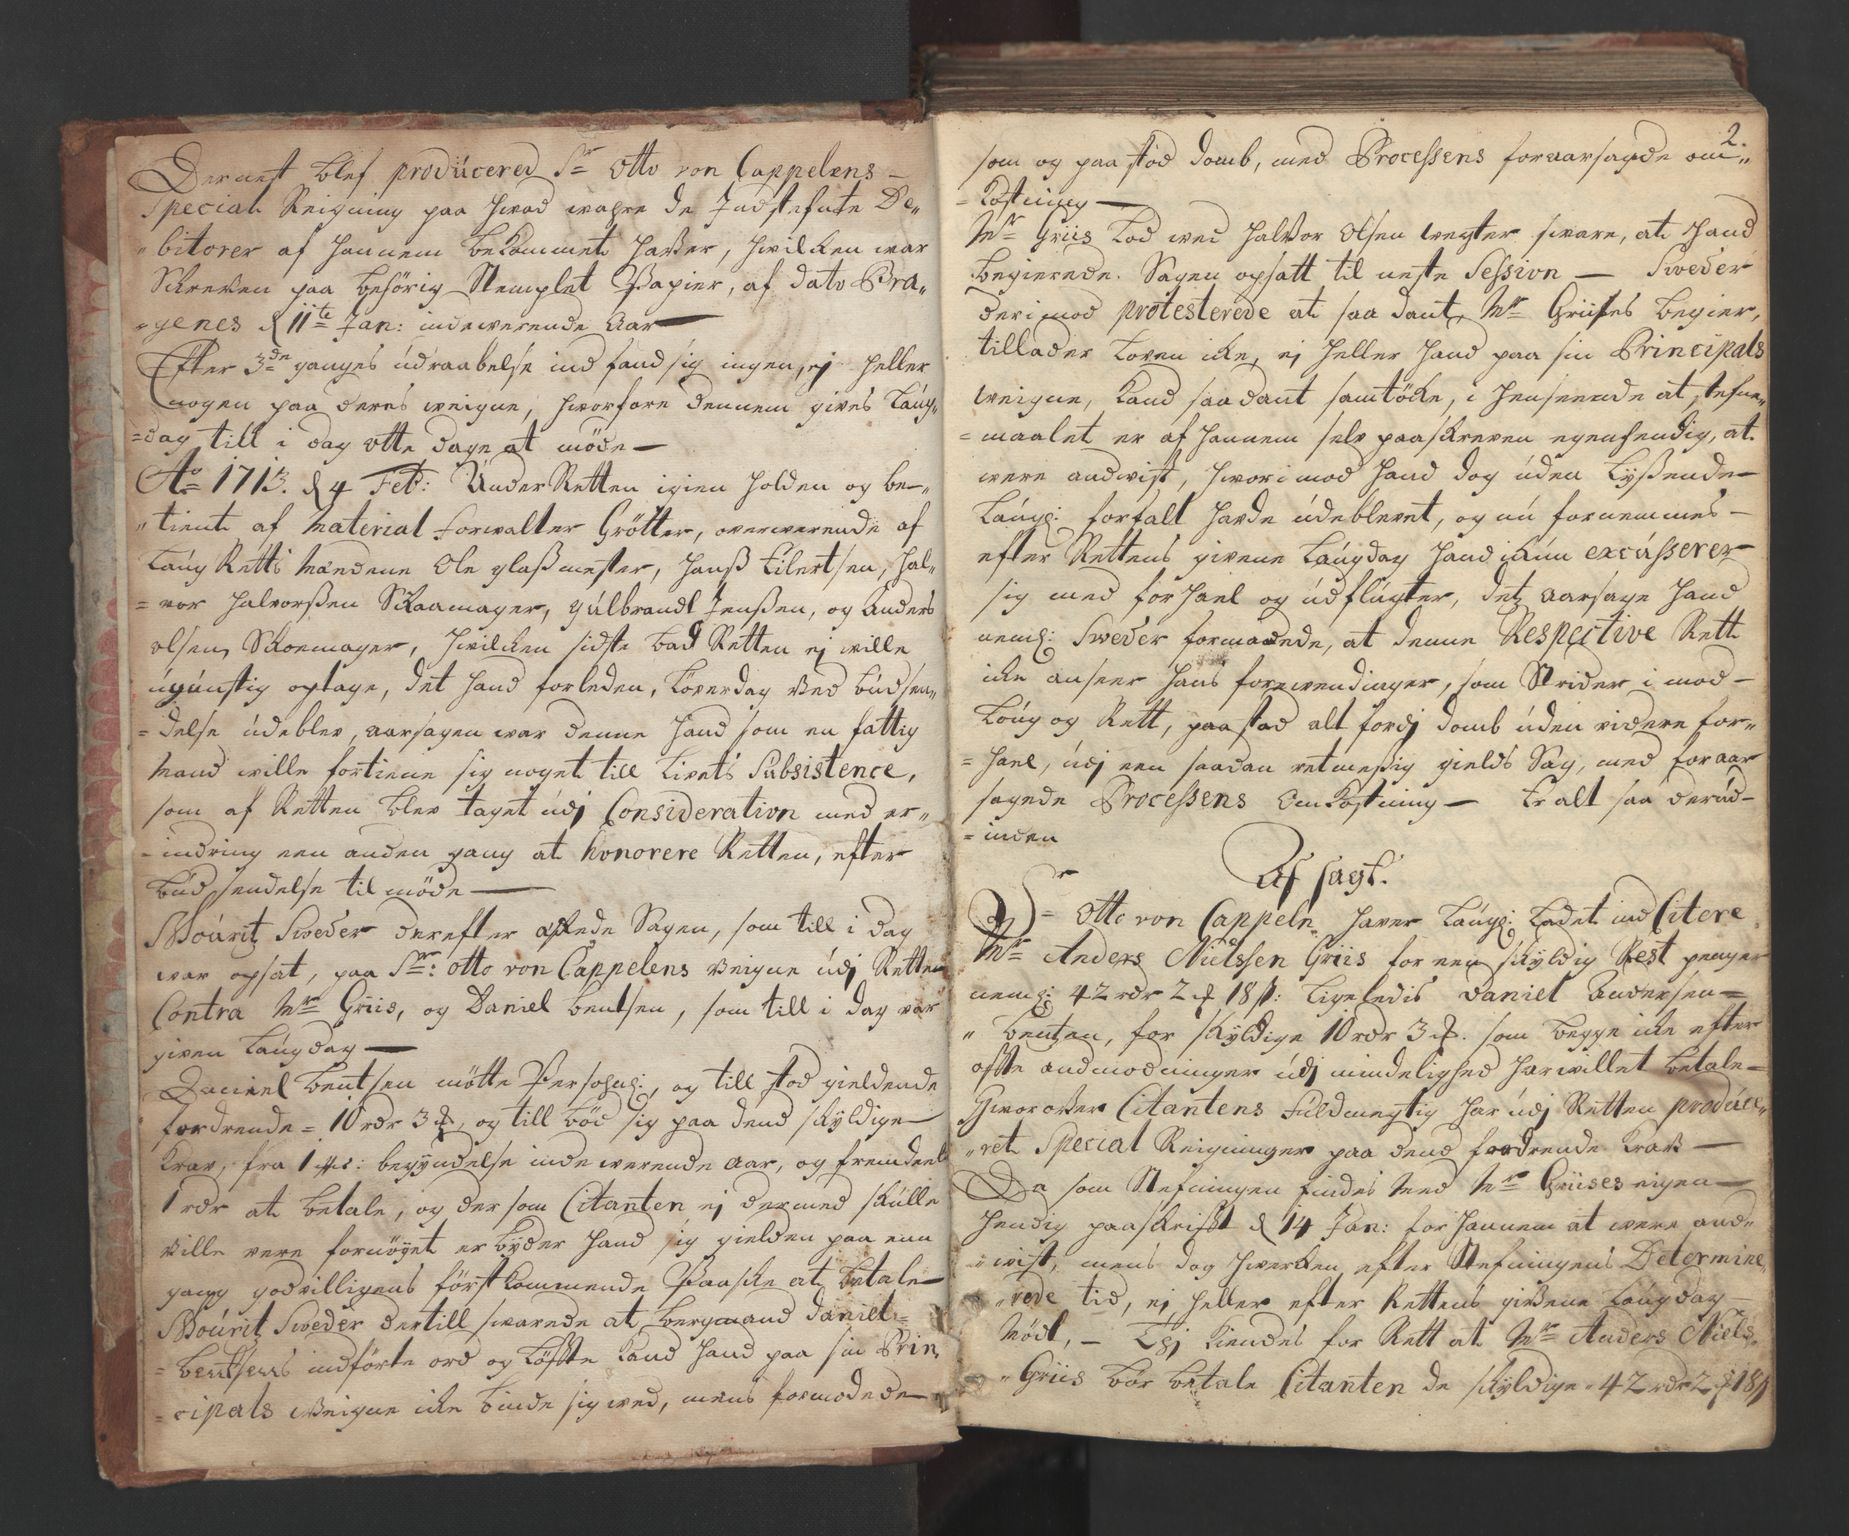 Dernest blef producered Sr Otto von Cappelens
Special Reigning paa hwad wahre de Indstefnte De„
„bitorer af hannem bekommet hafver, hvilcken war
Skreven paa behörig Stemplet Papier, af dato Bra„
„genes d 11te Jan: indewerende Aar —
Efter 3de ganges údraabelse indfand sig ingen, ej heller
nogen paa deres weigne, hworfore dennem gives Laúg„
=dag till i dag otte dage at möde —
Ao 1713. d 4 Feb: Under Retten igien holden og be„
„tient af Material Forwalter Grötter, overwerende af
Laúg Retts Mændene Ole glaßmester, Hanß Eilertsen, Hal„
=vor Halvorßen Skaamager, Gúlbrandt Jenßen, og Anders
olsen Skoemager, hvilcken sidste bad Retten ej wille
úgúnstig optage, det hand forleden, Löverdag ved búdsen„
=delse údeblev, aarsagen war denne hand som en fattig
Mand wille fortiene sig noget till Livets Subsistence,
som af Retten blev taget údj Consideration med er„
=indring een anden gang at honorere Retten, efter
búdsendelse til möde —
Moúritz Sweder derefter æskede Sagen, som till i dag
war opsat, paa Sr: Otto von Cappelens Veigne údj Retten
Contra Mr Griis, og Daniel bentsen, som till i dag var
given Laúgdag —
Daniel bentsen mötte Persohnl:, og till stod gieldende
fordrende = 10 rdr 3 ꝵ, og till böd sig paa dend skyldige
Krav, fra 1 begÿndelse indewerende aar, og fremdeels
1 rdr at betale, og der som Citanten ej dermed skúlle
ville vere fornöyet erbÿder hand sig gielden paa enn
gang godvilligens först kommende Paaske at betale
Moúritz Sweder dertill swarede at bergmand Daniel
=bentsens indförte ord og Löfte kand hand paa sin Prin„
=cipals Veigne icke binde sig wed, mens formodede

2.
som og paa stod domb, med Processens foraarsagede om„
=kostning —
Mr Griis lod wed Halvor Olsen wegter sware, at hand
begierede Sagen opsatt til neste Session — Sweder
derimod protesterede at saa dant, Mr Griises begier,
tillader Loven icke, ej heller hand paa sin Principals
weigne, kand saadant samtöcke, i henseende at stefne„
=maalet er af hannem selv paaskreven egenhendig, at
were andvist, hworimod hand dog úden Lyßende
Laúgl: forfalt havde údeblevet, og nú fornemmes
efter Rettens givene Laúgdag hand ickún excússerer
sig med forhael og údflúgter, det aarsage hand
neml: Sweder formodede, at denne Respective Rett
icke anseer hans forewendinger, som Strider i mod
Loúg og Rett, paastod alt fordj domb úden videre for„
=hael, údj een saadan retmeßig gields Sag, med foraar
sagede Processens Omkostning — Er alt saa derúd„
=inden
Af sagt.
Sr Otto von Cappeln haver Laúgl: Ladet indCitere
Mr Anders Nielssen Griis for een skyldig Rest penger
neml: 42 rdr 2 ꝵ 18 ß: Ligeledis Daniel Andersen
„ bentsen, for skyldige 10 rdr 3 ꝵ. som begge icke efter
ofte andmodninger údj mindelighed har villet betale
Hworover Citantens Fúldmegtig har údj Retten prodúce„
„ret Special Reigninger paa dend fordrende krav —
Da som Stefningen findes Med Mr Griises eigen
hendig paaskrifft d 14 Jan: for hannem at were and„
„vist, mens dog hwercken efter Stefningens Determine„
„rede tid, ej heller efter Rettens givene Laúgdag
Mödt, — Thj kiendes for Rett at Mr Anders Niels„
„Griis bör betale Citanten de skyldige 42 rdr 2 ꝵ 18 ß